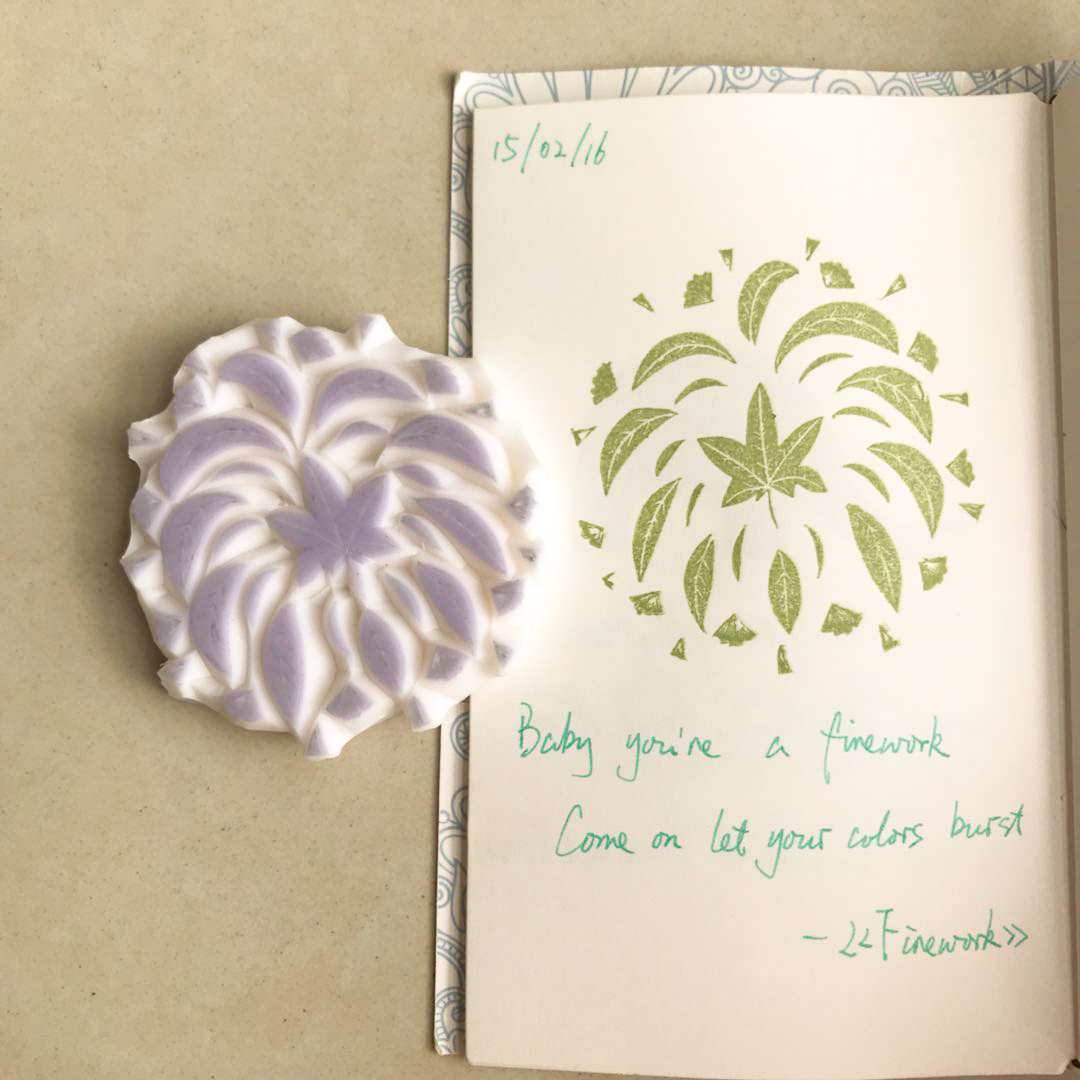 15/02/16
Baby you're a firework
Come on let your colors burst
- <<Firework>>